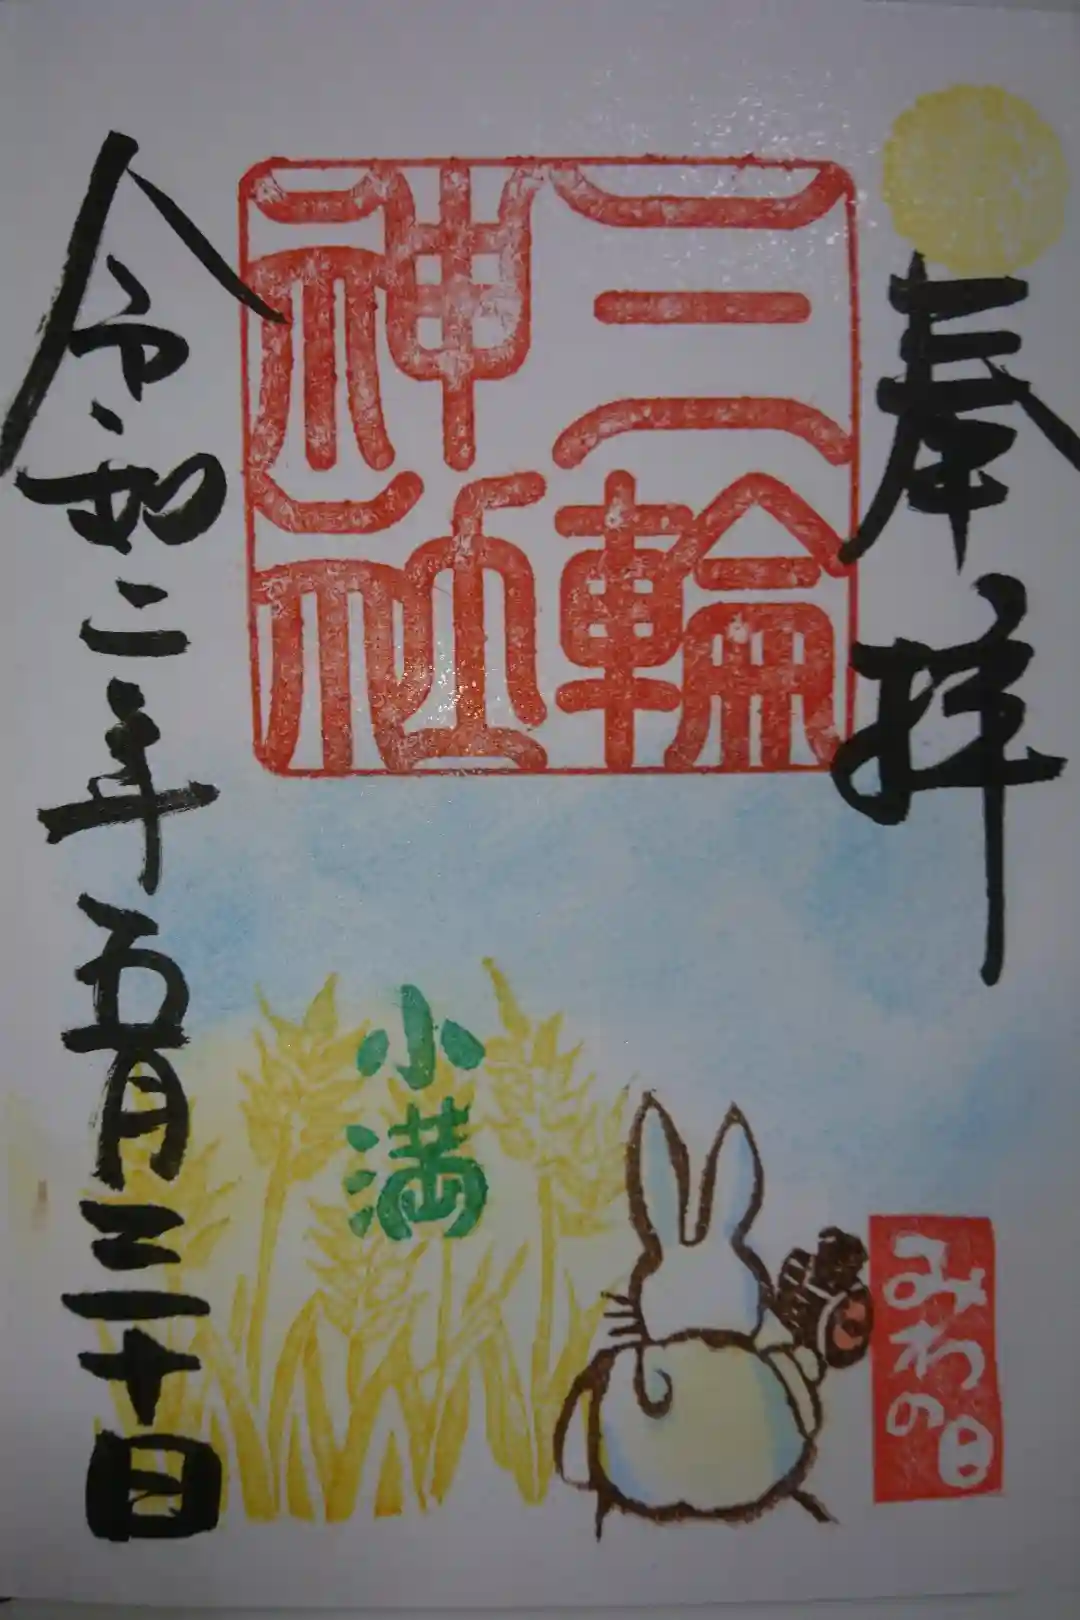 奉拝
三輪
神社
小満
みわの日
令和二年五月三十日